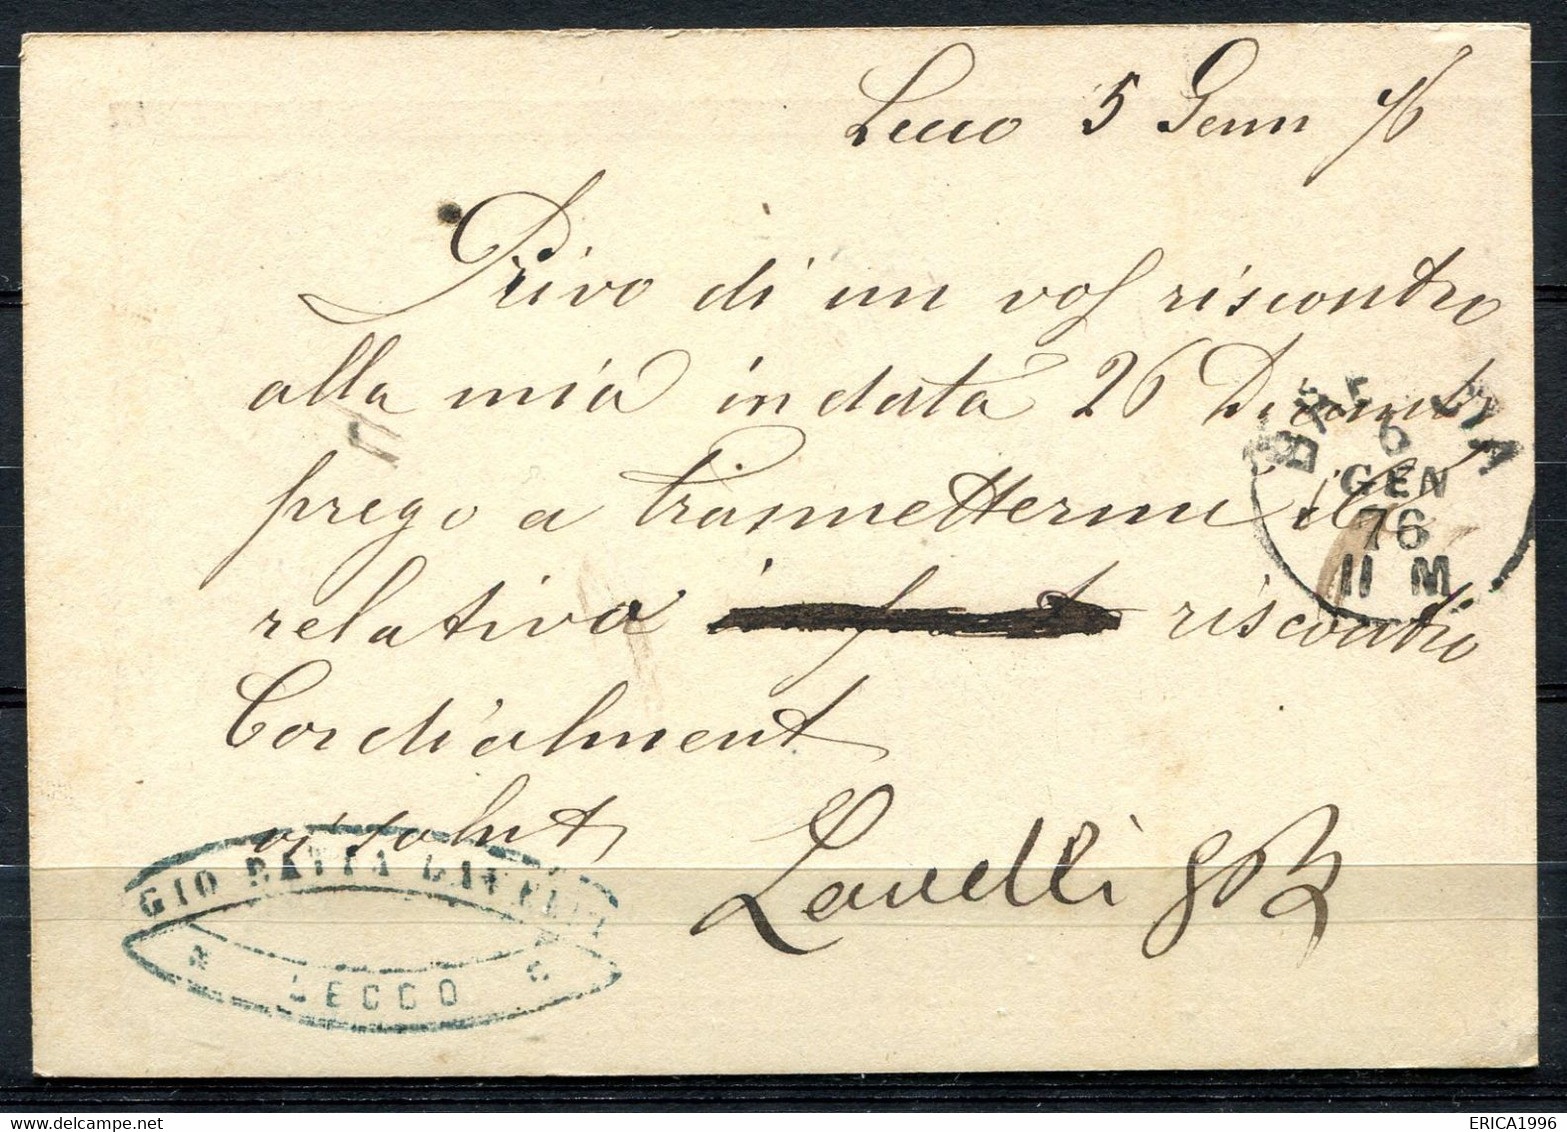 Lecco 5 Genn 76
Privo di un vos riscontro
alla mia in data 26 Dicemb
prego a trasmettermi il
relativo riscontro
Cordialment
vi salut
Lavelli GB
BRESCIA
6
GEN
76
11 M
GIO BATTA LAVELLI
LECCO
ERICA1996